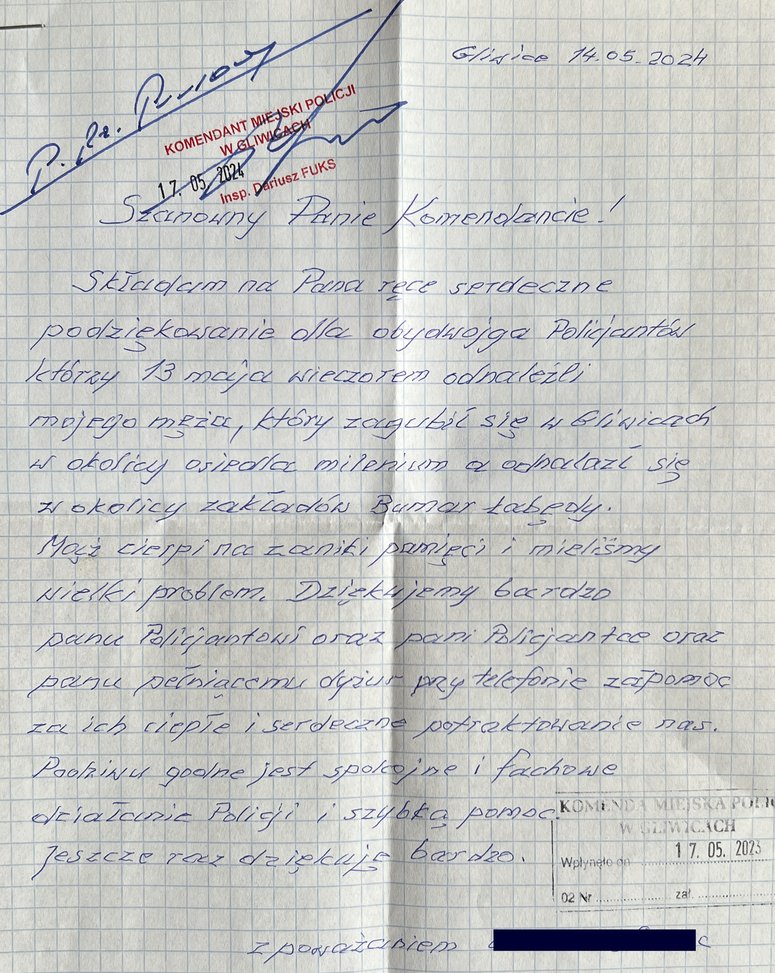 Gliwice 14.05.2024
P.
KOMENDANT MIEJSKI POLICJI
W GLIWICACH
17. 05. 2024
Insp. Dariusz FUKS
Szanowny Panie Komendancie!
Składam na Pana ręce serdeczne
podziękowanie dla obydwojga Policjantów
którzy 13 maja wieczorem odnaleźli
mojego męża, który zagubił się w Gliwicach
w okolicy osiedla milenium a odnalazł się
w okolicy zakładów Bumar Łabędy.
Mąż cierpi na zaniki pamięci i mieliśmy
wielki problem. Dziękujemy bardzo
panu Policjantowi oraz pani Policjantce oraz
panu pełniącemu dyżur przy telefonie za pomoc
za ich ciepłe i serdeczne potraktowanie nas.
Podziwu godne jest spokojne i fachowe
działanie Policji i szybka pomoc.
Jeszcze raz dziękuję bardzo.
KOMENDA MIEJSKA POLICJI
W GLIWICACH
Wpłynęło dn. 17. 05. 2023
02 Nr zał.
z poważaniem